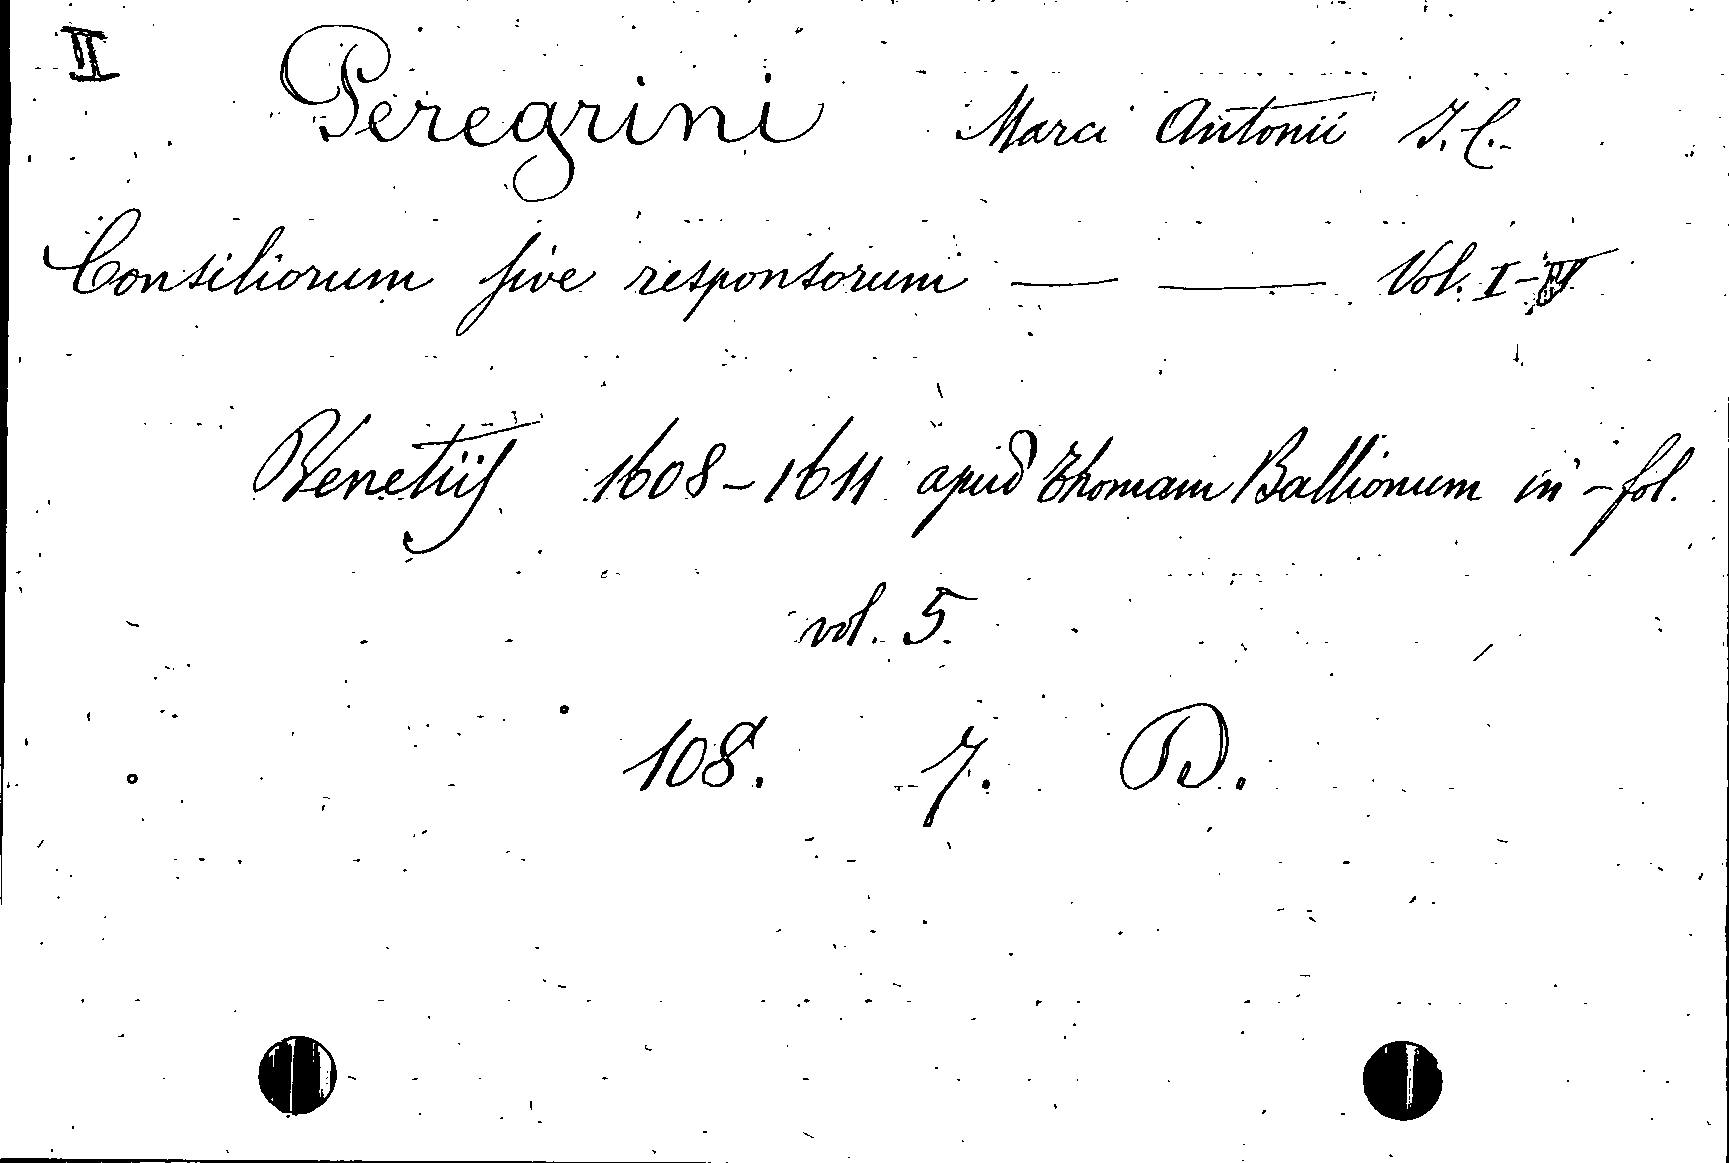 II
Peregrini Marci Antonii J. C.
Consiliorum sive responsorum — — Vol. I-IV
Venetiis 1608-1611 apud Thomam Ballionum in-fol.
vol. 5.
108. 7. D.